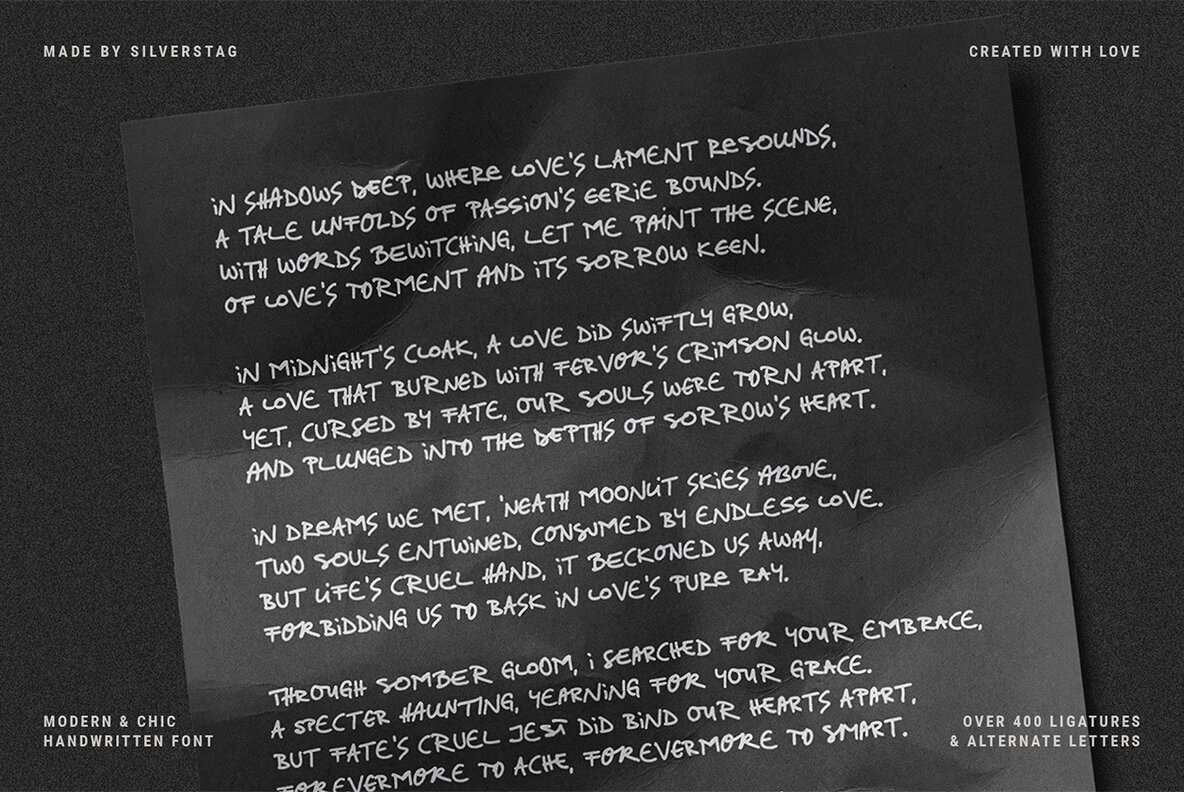 MADE BY SILVERSTAG
CREATED WITH LOVE
iN SHADOWS DEEP, WHERE LOVE'S LAMENT RESOUNDS,
A TALE UNFOLDS OF PASSiON'S EERiE BOUNDS.
WiTH WORDS BEWiTCHiNG, LET ME PAiNT THE SCENE,
OF LOVE'S TORMENT AND iTS SORROW KEEN.
iN MiDNiGHT'S CLOAK, A LOVE DiD SWiFTLY GROW,
A LOVE THAT BURNED WiTH FERVOR'S CRiMSON GLOW.
YET, CURSED BY FATE, OUR SOULS WERE TORN APART,
AND PLUNGED iNTO THE DEPTHS OF SORROW'S HEART.
iN DREAMS WE MET, 'NEATH MOONLiT SKiES ABOVE,
TWO SOULS ENTWiNED, CONSUMED BY ENDLESS LOVE.
BUT LiFE'S CRUEL HAND, iT BECKONED US AWAY,
FORBiDDiNG US TO BASK iN LOVE'S PURE RAY.
THROUGH SOMBER GLOOM, i SEARCHED FOR YOUR EMBRACE,
A SPECTER HAUNTiNG, YEARNiNG FOR YOUR GRACE.
BUT FATE'S CRUEL JEST DiD BiND OUR HEARTS APART,
FOREVERMORE TO ACHE, FOREVERMORE TO SMART.
MODERN & CHIC
HANDWRITTEN FONT
OVER 400 LIGATURES
& ALTERNATE LETTERS